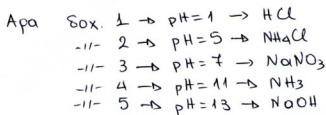 Άρα δοχ. 1 → pH = 1 → HCl
-//- 2 → pH = 5 → NH4Cl
-//- 3 → pH = 7 → NaNO3
-//- 4 → pH = 11 → NH3
-//- 5 → pH = 13 → NaOH